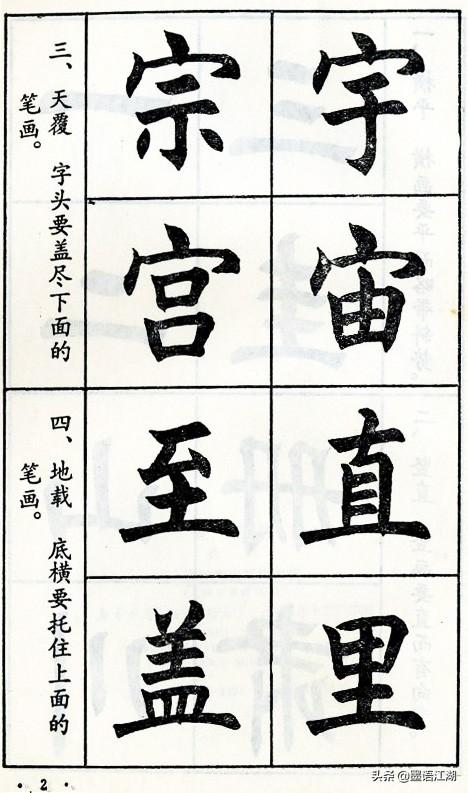 三、天覆 字头要盖尽下面的
笔画。
宇宙
宗宫
四、地载 底横要托住上面的
笔画。
直里
至盖
· 2 ·
头条 @墨语江湖